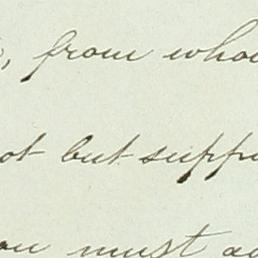 , from who
ot but suppo
ou must a